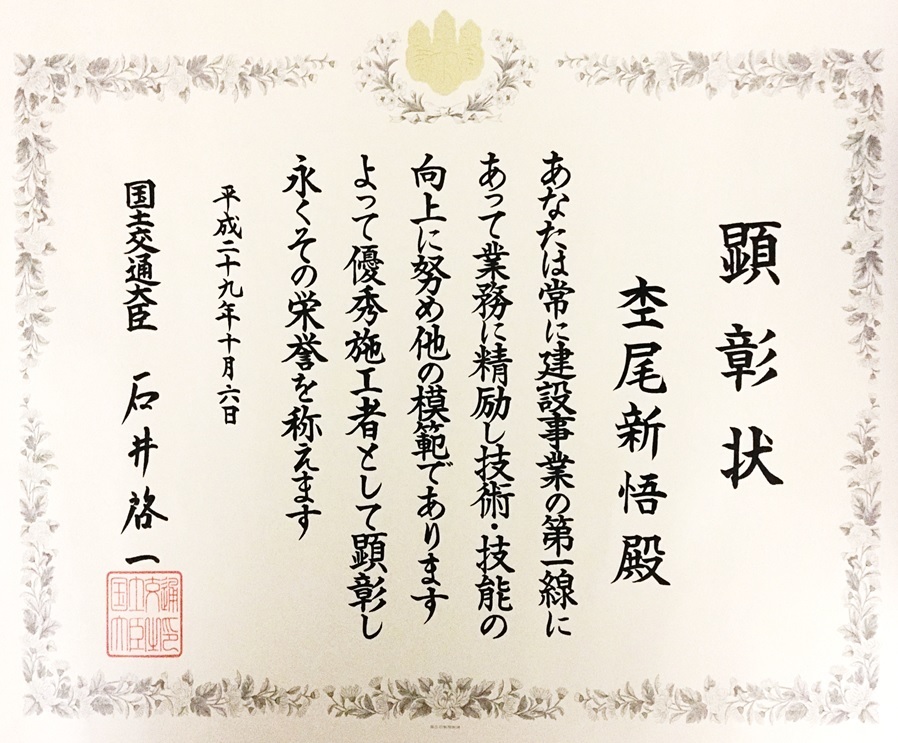 顕彰状
杢尾新悟殿
あなたは常に建設事業の第一線に
あって業務に精励し技術・技能の
向上に努め他の模範であります
よって優秀施工者として顕彰し
永くその栄誉を称えます
平成二十九年十月六日
国土交通大臣 石井啓一
国土交通
大臣之印